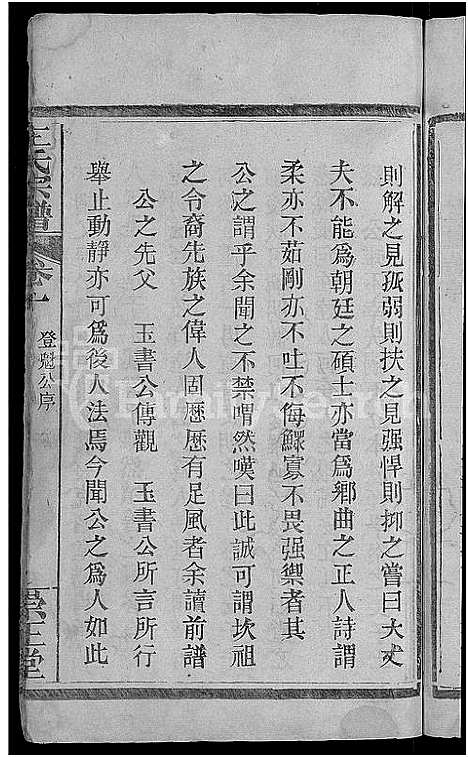 則解之見孤弱則扶之見强悍則抑之嘗曰大丈
夫不能爲朝廷之碩士亦當爲鄕曲之正人詩謂
柔亦不茹剛亦不吐不侮鰥寡不畏强禦者其
公之謂乎余聞之不禁喟然嘆曰此誠可謂坎祖
之令裔先族之偉人固歷歷有足風者余讀前譜
公之先父 玉書公傳觀 玉書公所言所行
舉止動靜亦可爲後人法焉今聞公之爲人如此
王氏宗譜 卷十 登魁公序
堂
FamilySearch